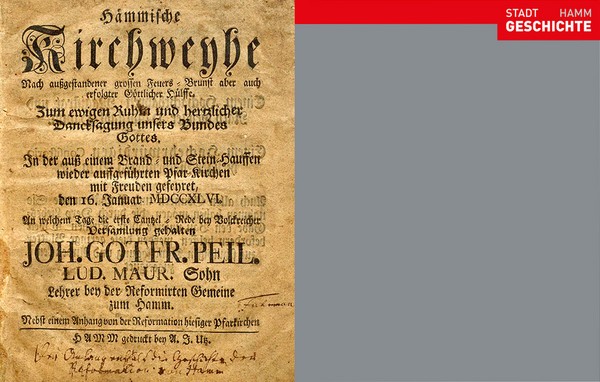 Hämmische
Kirchweyhe
Nach außgestandener grossen Feuers-Brunst aber auch
erfolgter Göttlicher Hülffe.
Zum ewigen Ruhm und hertzlicher
Dancksagung unsers Bundes
Gottes.
In der auß einem Brand- und Stein-Hauffen
wieder auffgeführten Pfar-Kirchen
mit Freuden gefeyret,
den 16. Januar. MDCCXLVI.
An welchem Tage die erste Cantzel-Rede bey Volckreicher
Versamlung gehalten
JOH. GOTFR. PEIL.
LUD. MAUR. Sohn
Lehrer bey der Reformirten Gemeine
zum Hamm.
Nebst einem Anhang von der Reformation hiesiger Pfarkirchen
HAMM gedruckt bey A. J. Utz.
Geschichte der
Reformation
STADT HAMM
GESCHICHTE